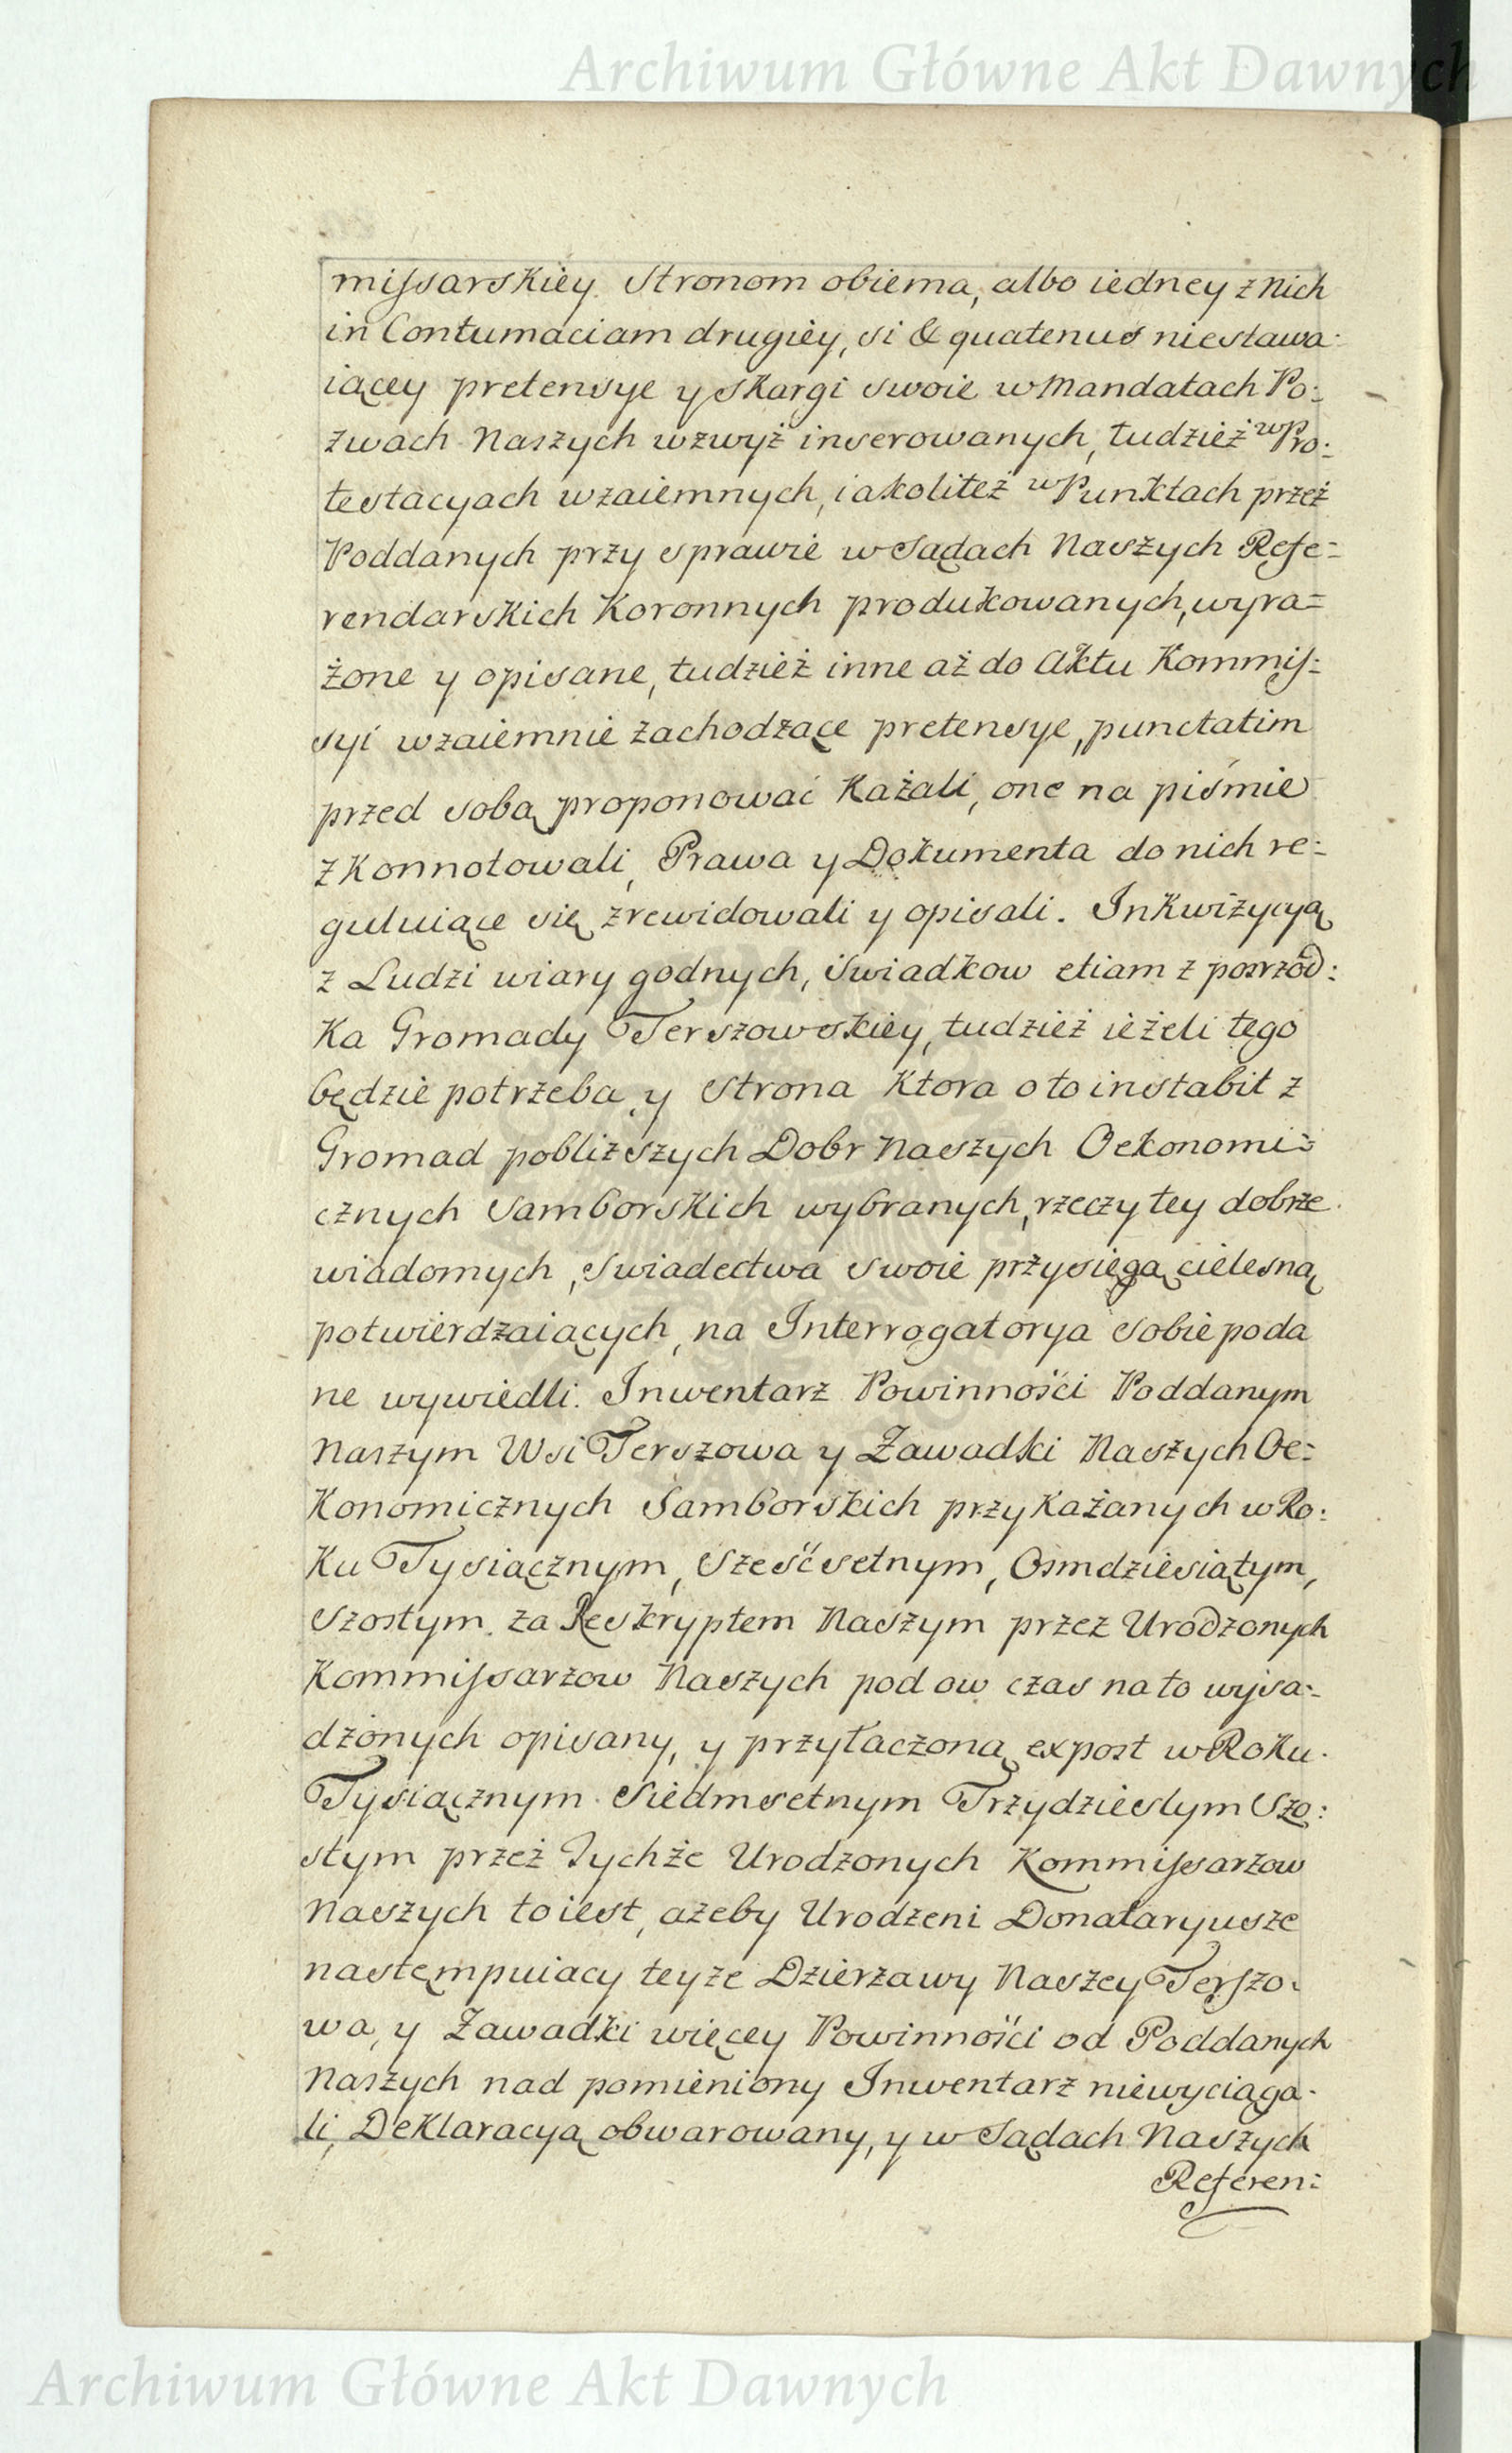 Archiwum Główne Akt Dawnych
missarskiey. Stronom obiema, albo iedney z nich
in Contumaciam drugiey, si & quatenus niestawa-
iącey pretensye y skargi swoie w Mandatach Po:
zwach Naszych wzwyż inserowanych, tudzież w Pro:
testacyach wzaiemnych, iakoliteż w Punktach przez
Poddanych przy sprawie w Sądach Naszych Refe=
rendarskich Koronnych produkowanych, wyra=
żone y opisane, tudzież inne aż do Aktu Kommis:
syi wzaiemnie zachodzące pretensye, punctatim
przed sobą proponować Kazali, one na piśmie
zkonnotowali, Prawa y Dokumenta do nich re:
guluiące się zrewidowali y opisali. Inkwizycyą
z Ludzi wiary godnych, świadkow etiam z posrzod:
ka Gromady Terszowskiey, tudzież ieżeli tego
będzie potrzeba y Strona Ktora o to instabit z
Gromad pobliższych Dobr Naszych Oekonomi:
cznych Samborskich wybranych, rzeczy tey dobrze
wiadomych, swiadectwa swoie przysięgą cielesną
potwierdzaiących, na Interrogatorya sobie poda
ne wywiedli. Inwentarz Powinności Poddanym
Naszym Wsi Terszowa y Zawadki Naszych Oe:
konomicznych Samborskich przykazanych w Ro:
ku Tysiącznym, Sześćsetnym, Osmdziesiątym,
Szostym za Reskryptem Naszym przez Urodzonych
Kommissarzow Naszych pod ow czas na to wysa:
dzonych opisany, y przyłączoną expost w Roku
Tysiącznym Siedmsetnym Trzydziestym Szo:
stym przez Tychże Urodzonych Kommissarzow
Naszych to iest, ażeby Urodzeni Donataryusze
nastempuiacy teyze Dzierzawy Naszey Terszo-
wa, y Zawadki więcey Powinności od Poddanych
Naszych nad pomieniony Inwentarz niewyciąga-
li, Deklaracyą obwarowany, y w Sądach Naszych
Referen:
Archiwum Główne Akt Dawnych